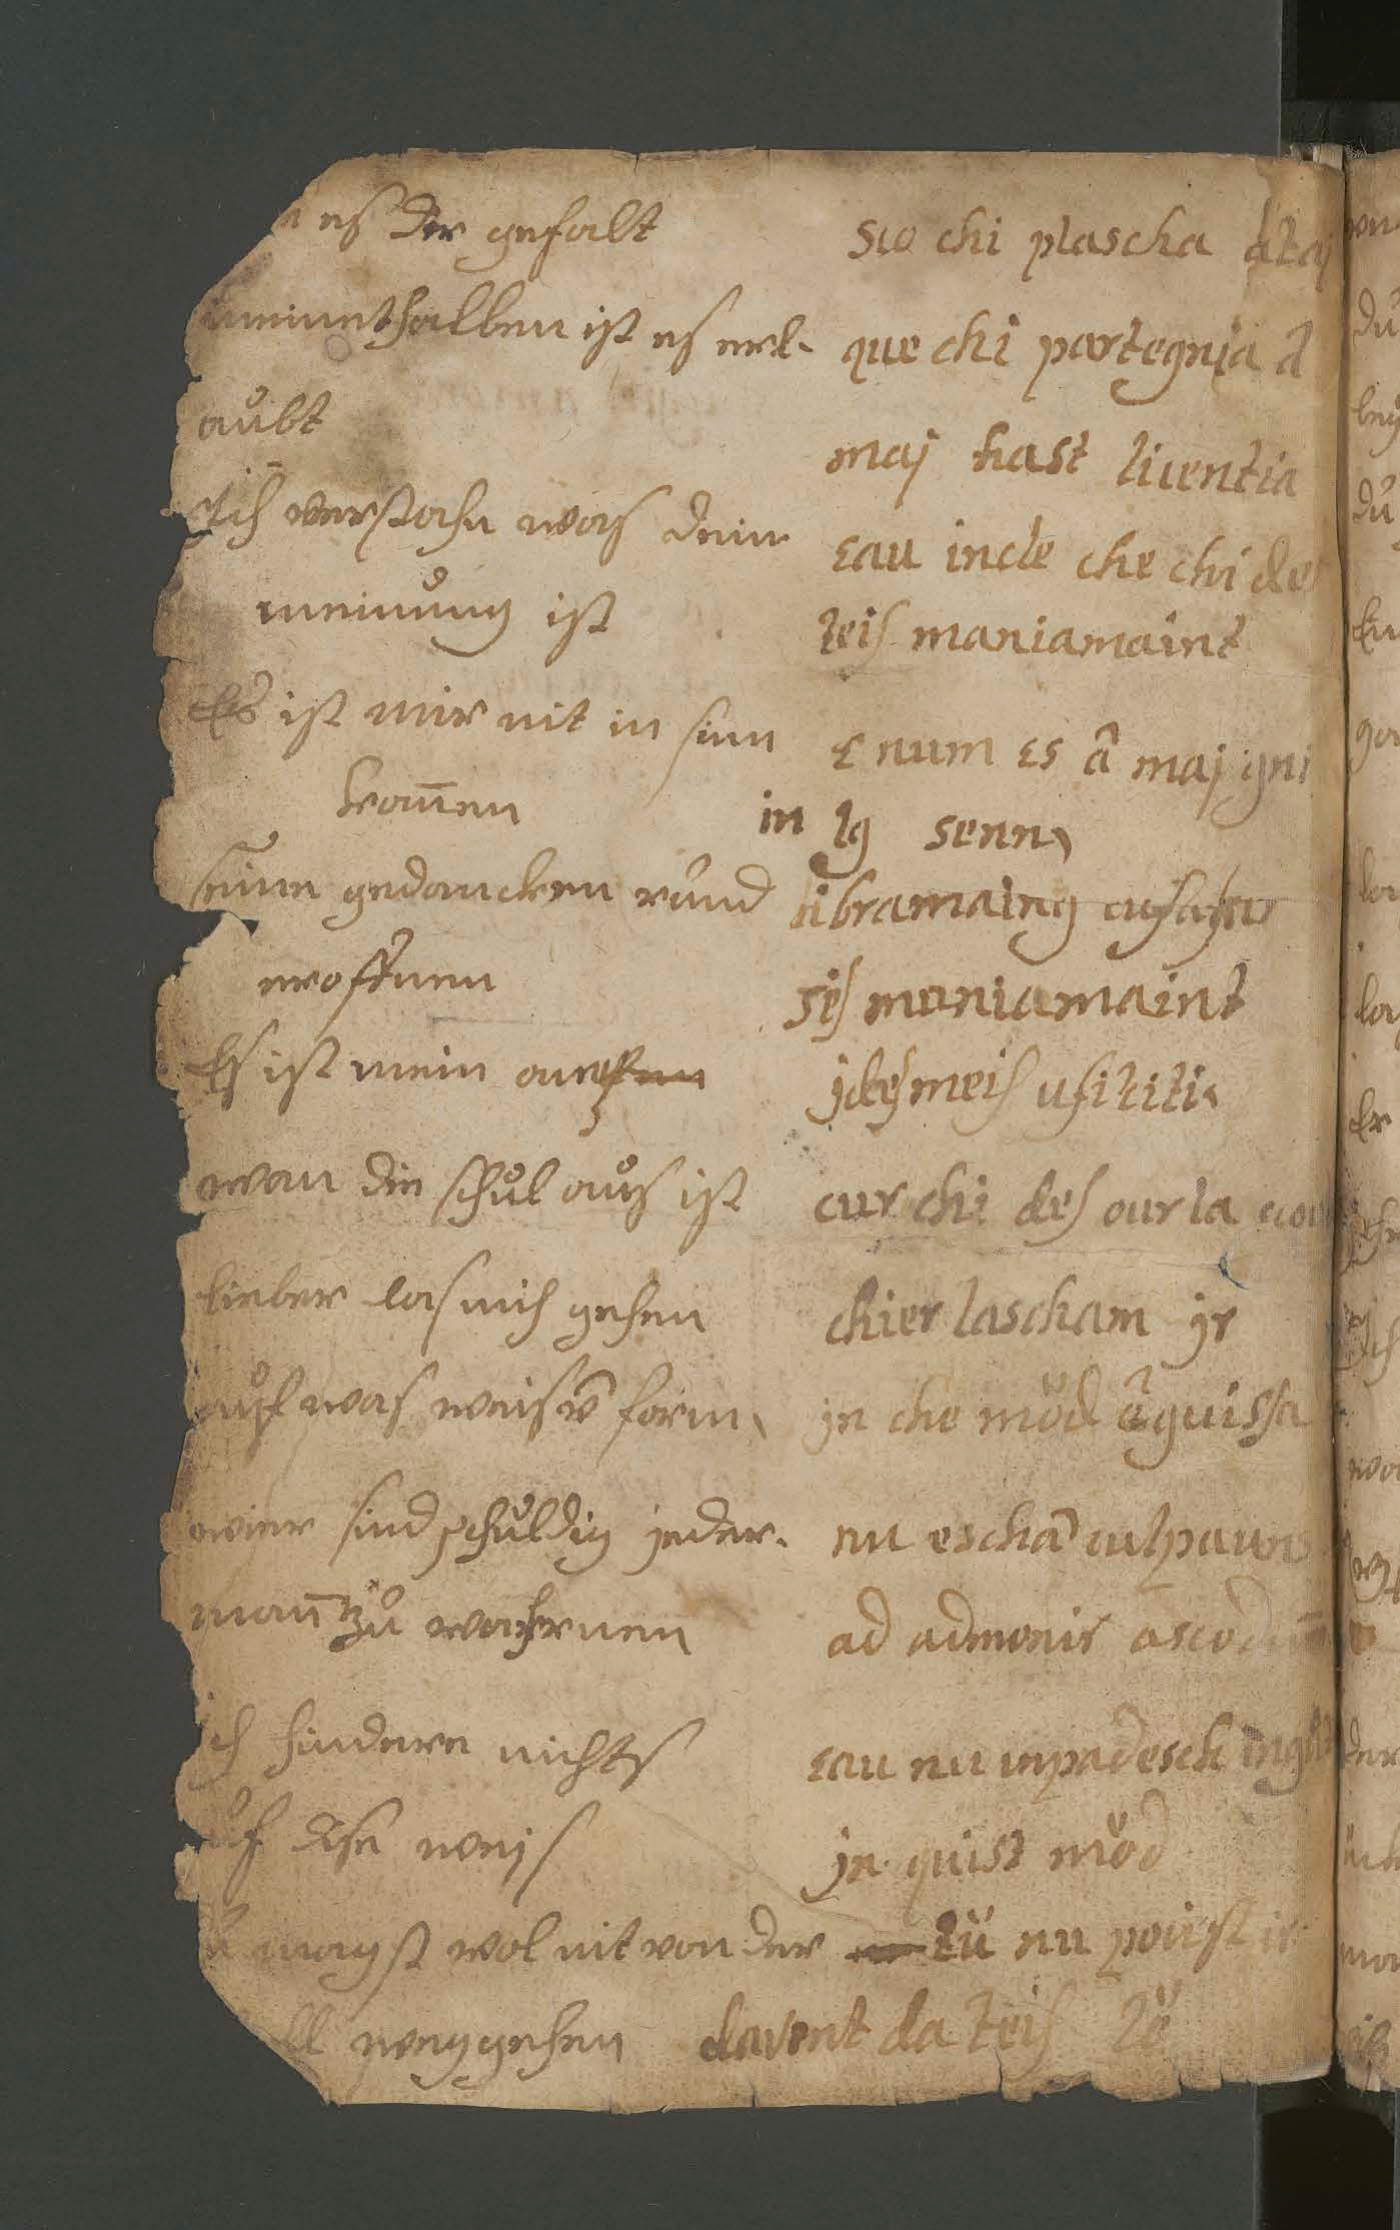 es der gefalt
sco chi plascha à taj
meinethalben ist es erl-
que chi partegnia à
aubt
maj hast licentia
Ich verstahn was dein
eau incle che chi des
meinung ist
teis maniamaint
Es ist mir nit in sinn
E num es â maj gni
kom̄en
in lg senn
seine gedancken rund
libramaing
eroffnen
seis maniamaint
Es ist mein
ides meis
wan die schul aus ist
cur chi des our la
lieber las mich gehen
chier lascham ir
auf was weis form
in che möd â guissa
wier sind schuldig jeder-
nu eschā culpauns
man̄ zu wahrnen
ad admonir
ich hindere nichts
eau nu impadesch
uf dise weis
in quist möd
magst wol nit von der
tü nu poust ir
ll weggehen
davent da teis lö